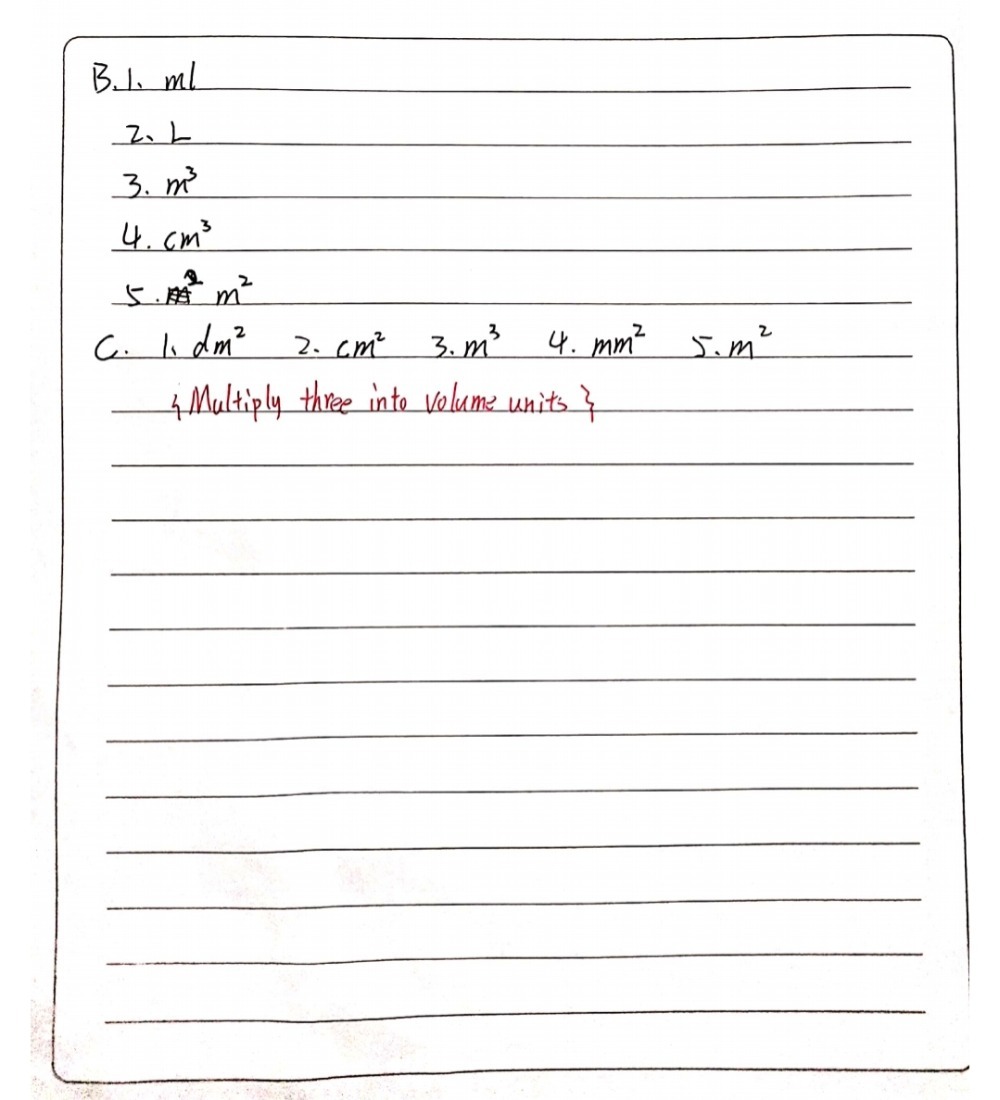 B.1. ml
2. L
3. m³
4. cm³
5. m² m²
C. 1. dm² 2. cm² 3. m³ 4. mm² 5. m²
{Multiply three into volume units}